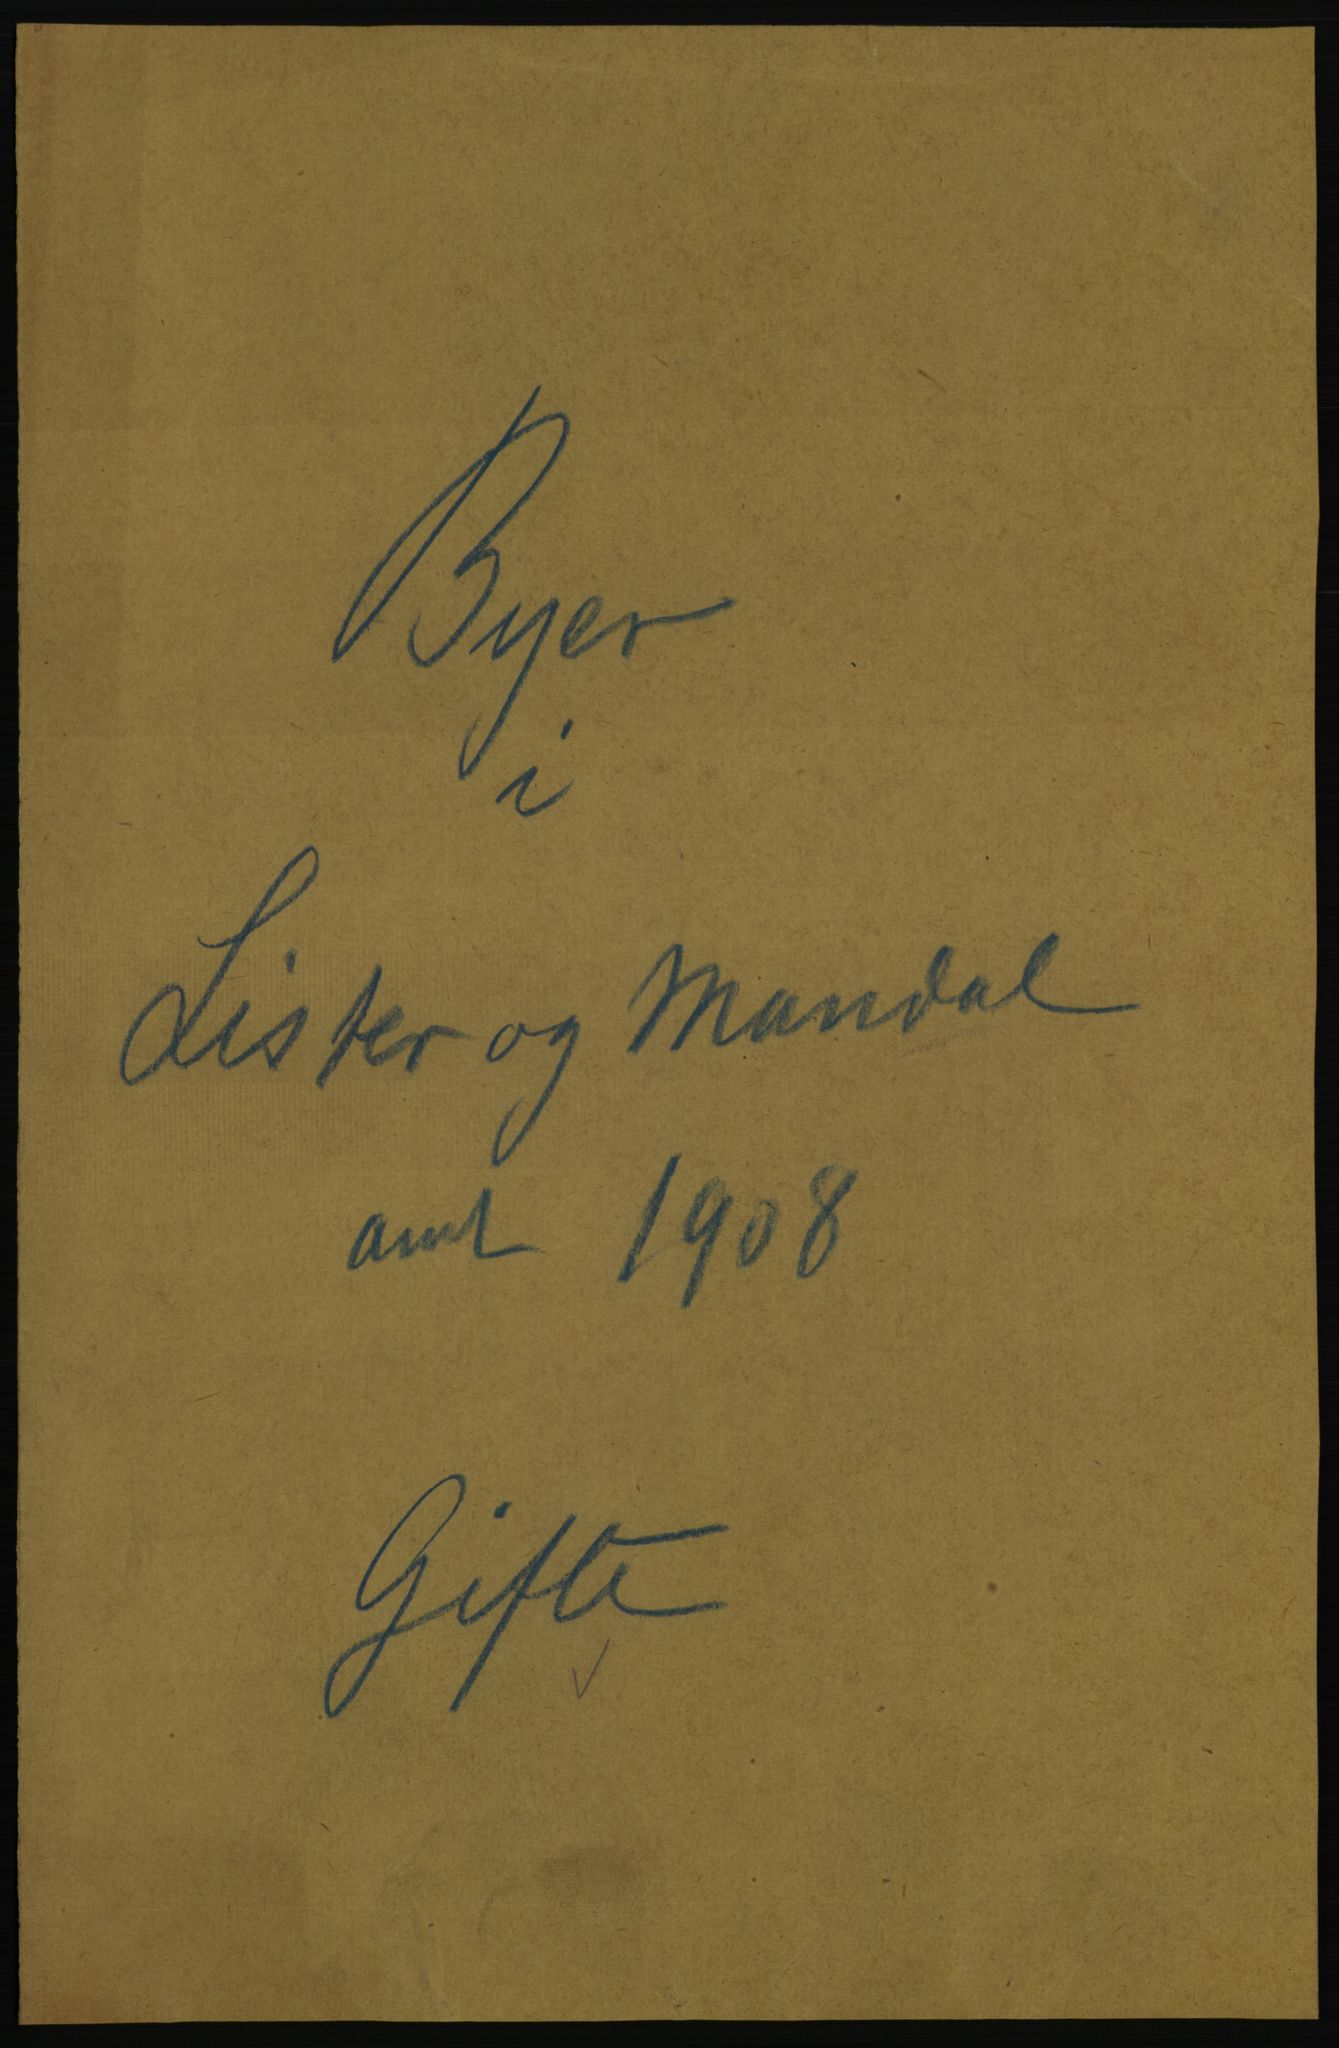 Byer
i
Lister og Mandal
amt 1908
Gifte